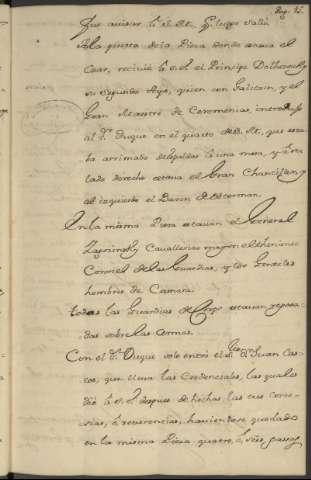 Pag. 15.
que avisar à S. M. q.e luego salió
A la puerta de la Pieza donde estava el
Czar, recivió à S. E. el Principe Dolhorouki
su segundo Ayo, quien con Galitzin, y el
Gran Maestro de Ceremonias, introdujo
al S.r Duque en el quarto de S. M. que esta-
ba arrimado de espaldas à una mesa, y à su
lado derecho estava el Gran Chanciller, y
al izquierdo el Baron de Osterman.
En la misma Pieza estavan el General
Cavallerizo mayor, el theniente
Coronel de las Guardias, y los Gentiles
hombres de Camara.
todas las Guardias de Corps estavan reposa-
das sobre las Armas.
Con el S.r Duque solo entró el S.r D.n Juan Cas-
cos, que lleva las Credenciales, las quales
dió à S. E. despues de hechas las tres corte-
sias, ò reverencias, haviendose quedado
en la misma Pieza quatro, ò seis passos